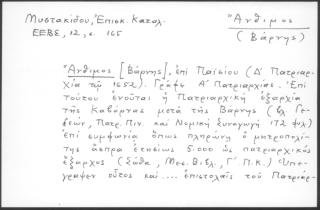 Μυστακίδου, Ἐπισκ. Καταλ.
ΕΕΒΣ, 12, σ. 165
Ἄνθιμος
(Βάρνης)
"Ἄνθιμος [Βάρνης], ἐπὶ Παϊσίου (Δ' Πατριαρ-
χία τῷ 1652). Γράφε Α' Πατριαρχίας. Ἐπὶ
τούτου ἑνοῦται ἡ Πατριαρχικὴ ἐξαρχία
τῆς Καβάρνας μετὰ τῆς Βάρνης (βλ. Γε-
δεών, Πατρ. Πιν. καὶ Νομικὴ Συναγωγὴ 172 φύλ)
ἐπὶ συμφωνίᾳ ὅπως πληρώνῃ ὁ μητροπολί-
της ἄσπρα ἐτησίως 5.000 ὡς πατριαρχικὸς
ἔξαρχος (Σάθα, Μεσ. Βιβλ., Γ' Π.Κ.) Ὑπέ-
γραψεν οὗτος καὶ .... ἐπιστολὰς τοῦ Πατριάρ-